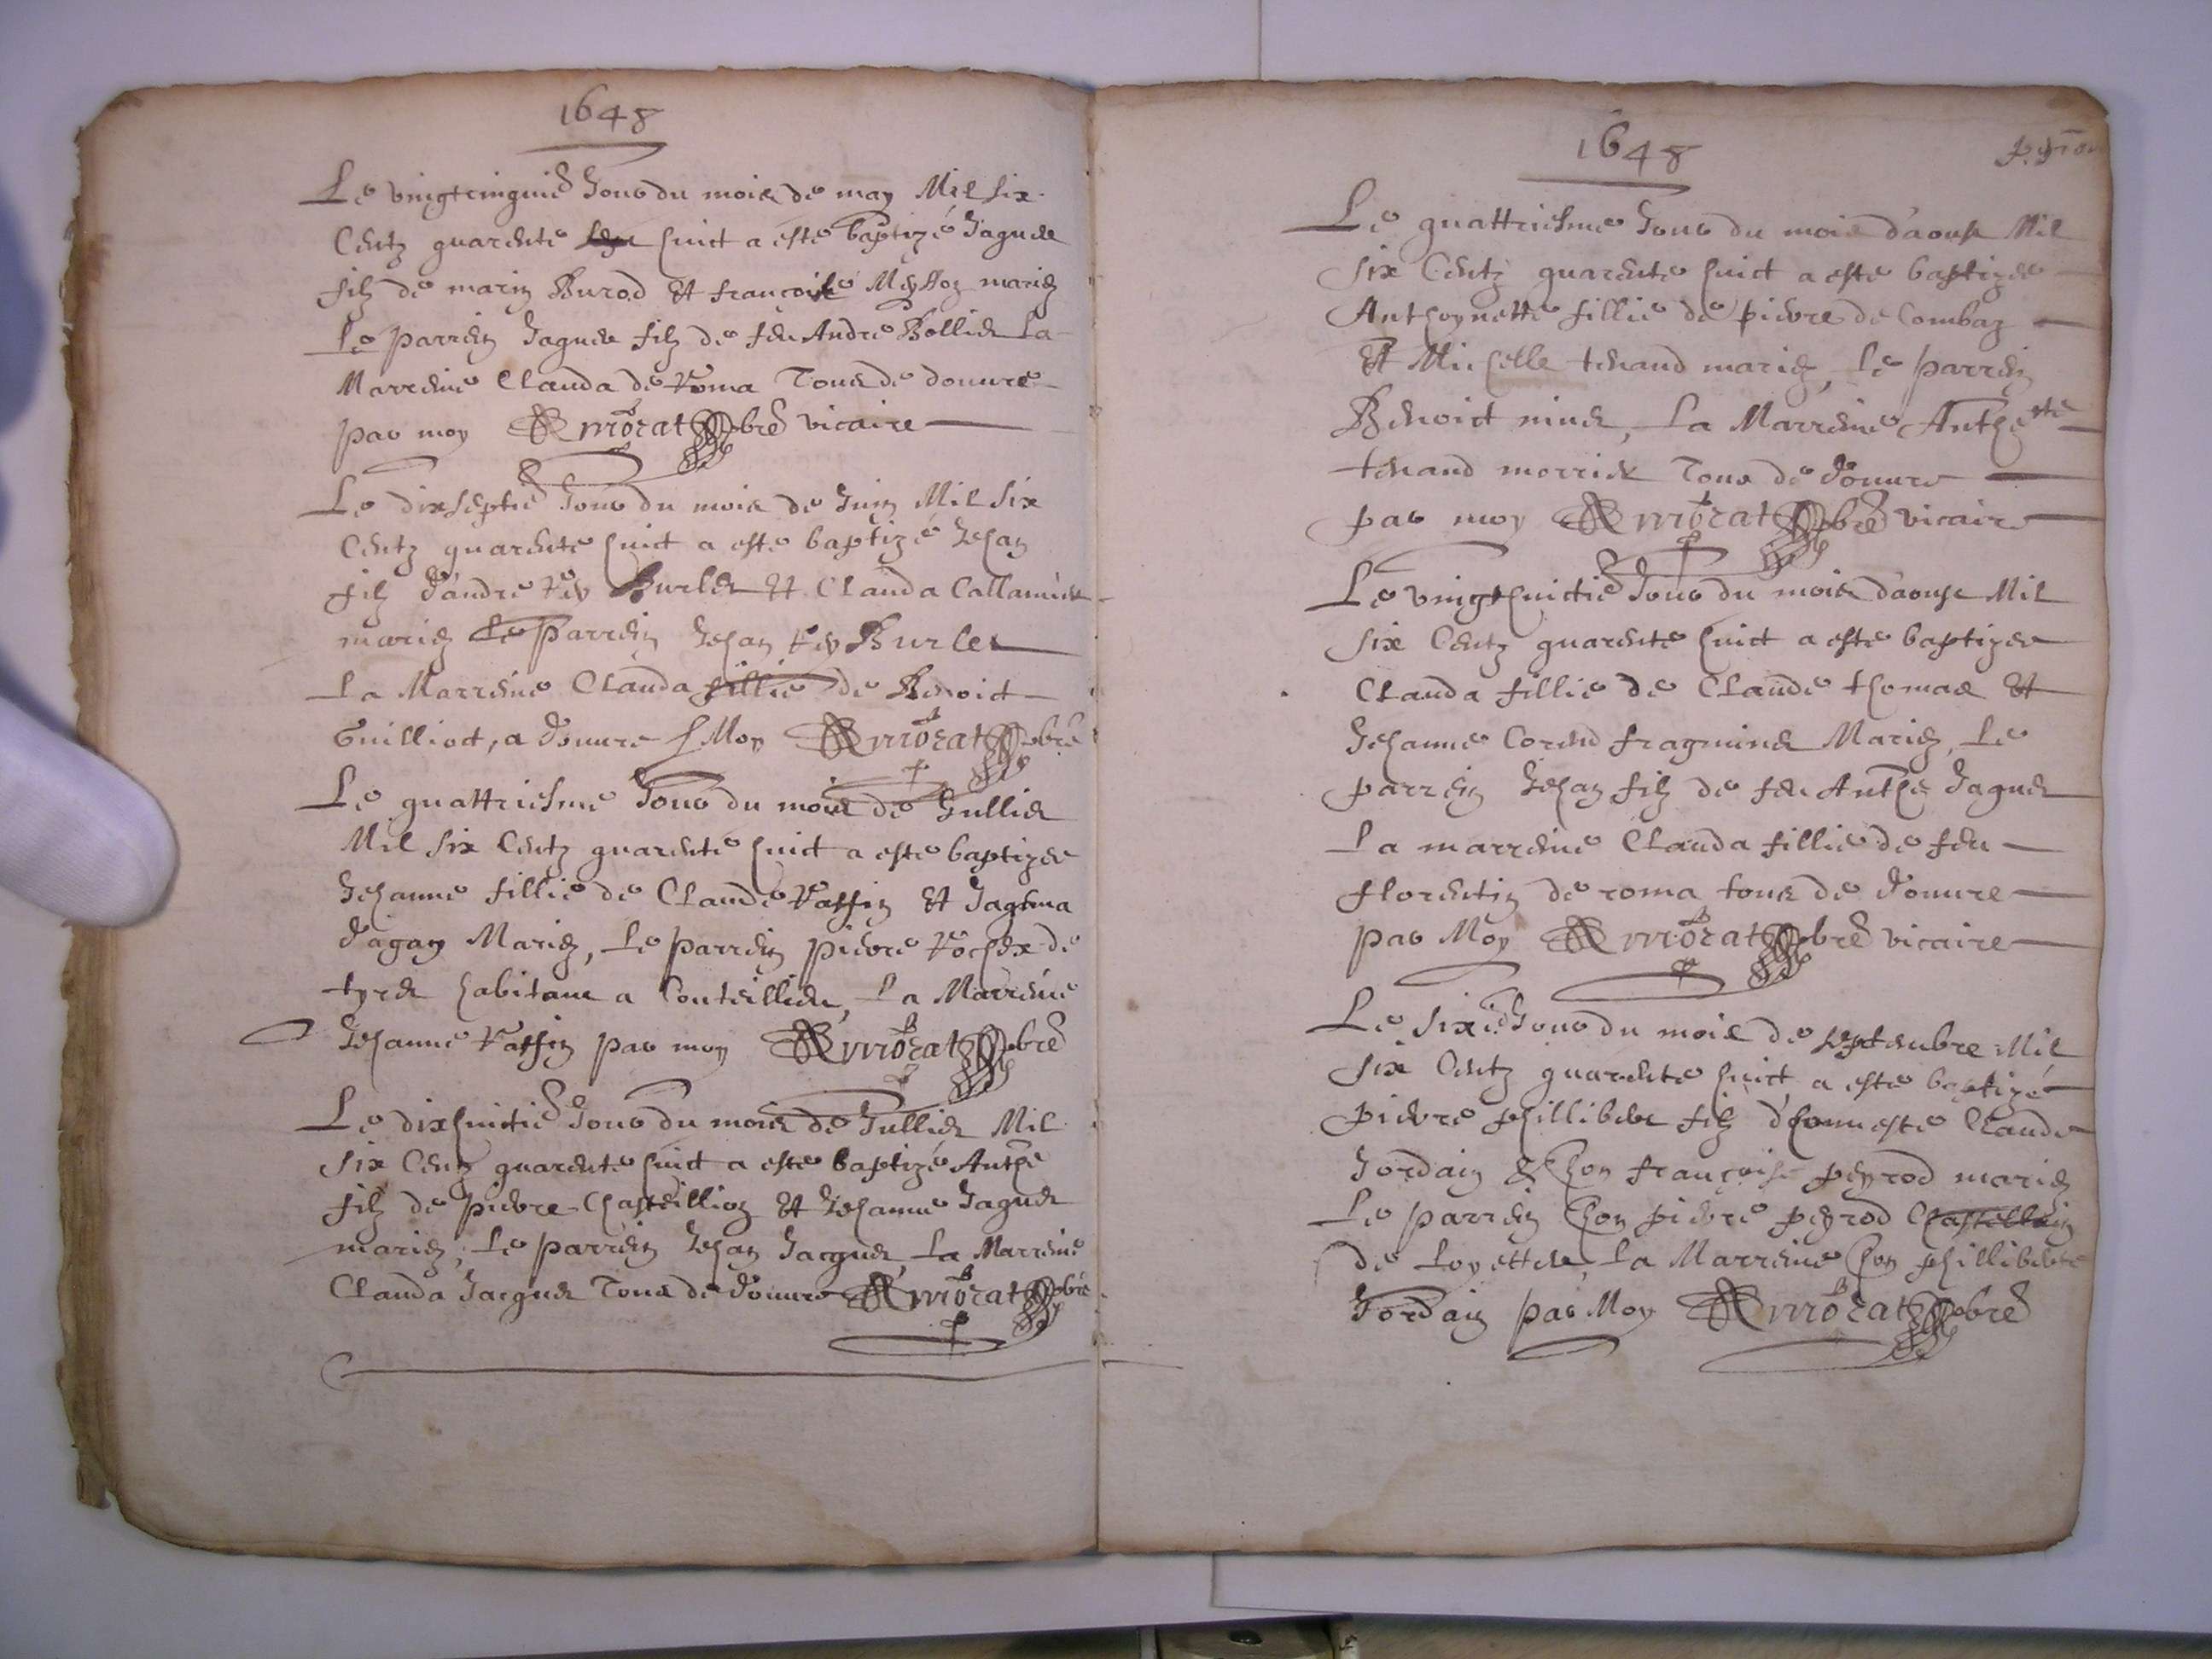 1648
Le vingtcinquie Jour du mois de may Mil six
Centz quarente huict a esté baptizé Jaques
filz de marin Burod et françoise mariez
Le parrein Jaques filz de feu André Bollier La
Marreine Clauda de Roma Tous de douure
par moy Morat pbre vicaire
Le dixseptie Jour du mois de Juin Mil six
Centz quarente huict a esté baptizé Jehan
filz d'andré Rey Burlet et Clauda
mariez Le parrein Jehan Rey Burlet
La Marreine Clauda fillie de Benoict
Guilliot, a douure p Moy Morat pbre
Le quattriesme Jour du mois de Jullier
Mil six Centz quarente huict a esté baptizee
Jehanne fillie de Claude Vassin et Jaqema
dagan Mariez, Le parrein pierre Rochex de
habitant a La Marreine
Jehanne Vassin par moy Morat pbre
Le dixhuictie Jour du mois de Jullier Mil
six Centz quarente huict a esté baptizé Anthe
filz de pierre Chasteillion et Jehanne Jaques
mariez, Le parrein Jehan Jacques, La Marreine
Clauda Jacques Tous de douure Morat pbre
1648
Le quattriesme Jour du mois d'aoust Mil
six Centz quarente huict a esté baptizee
Anthoynette fillie de pierre de Combaz
et Michelle tenand mariez, Le parrein
Benoict La Marreine Anthette
tenand Tous de douure
par moy Morat pbre vicaire
Le vingthuictie Jour du mois d'aoust Mil
six Centz quarente huict a esté baptizee
Clauda fillie de Claude thomas et
Jehanne Mariez, Le
parrein Jehan filz de feu Anthe Jaques
La marreine Clauda fillie de feu
florentin de roma tous de douure
par Moy Morat pbre vicaire
Le sixie Jour du mois de septembre Mil
six Centz quarente huict a esté baptizé
pierre phillibert filz d'honneste Claude
Jordain & hon françoise peyrod mariez
Le parrein hon pierre peyrod Chastellain
de Loyettes, La Marreine hon philliberte
Jordain par Moy Morat pbre